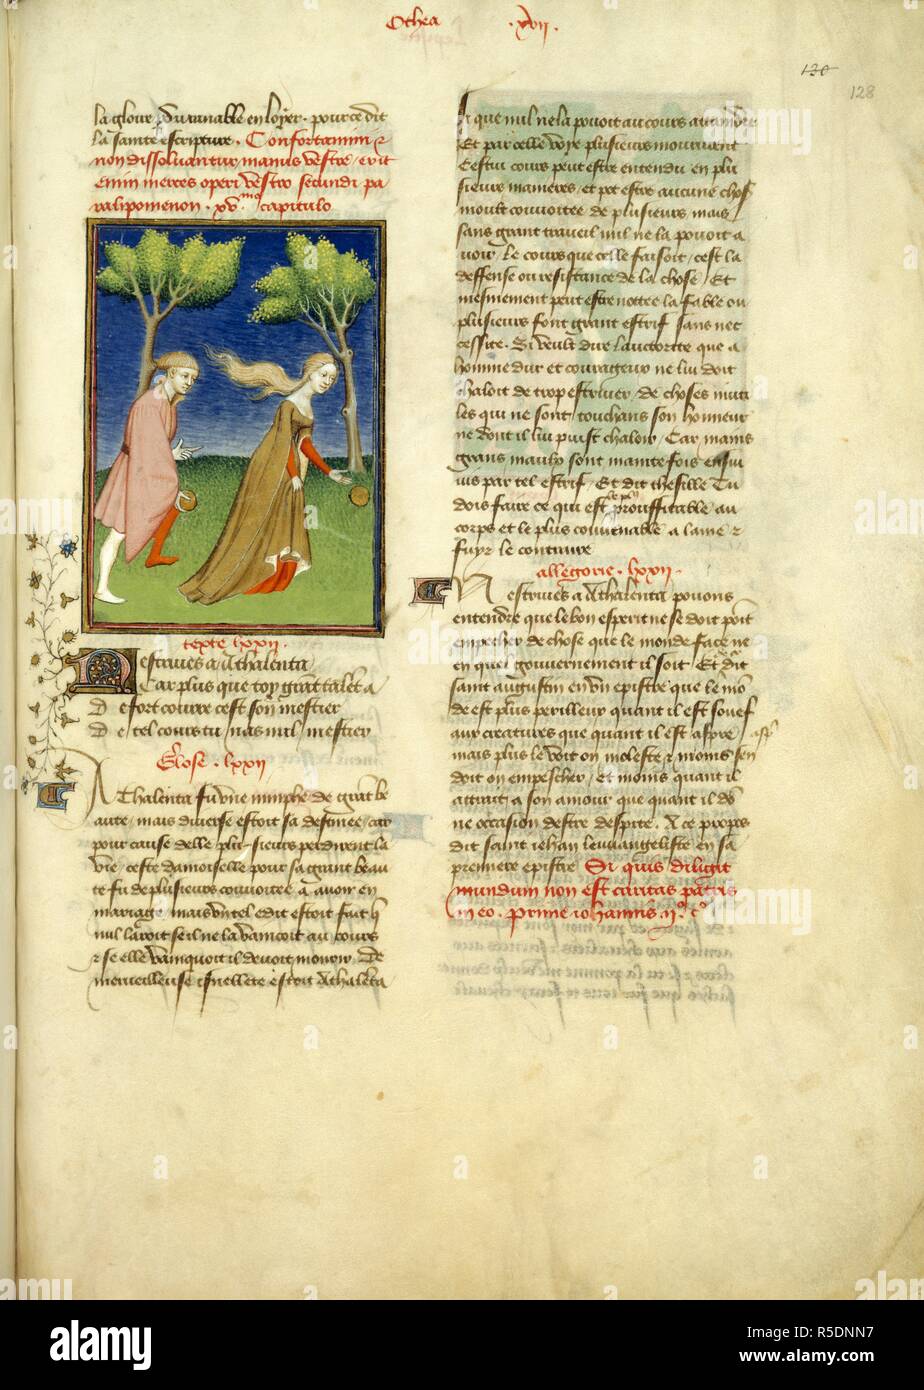 Othea .xvii.
130
128
la gloire Pardurable en loyer. pource dit
la sainte escripture. Confortamini et
non dissoluantur manus vestre, erit
enim merces operi vestro secundi pa
ralipomenon. xv.mo capitulo
texte lxxii.
N estrives a Athalenta
Car plus que toy grant talent a
D e fort courre cest son mestier
D e tel cours tu nas nul mestier
Glose. lxxii
Athalenta fu une nimphe de grant be
aute, mais diverse estoit sa destinee, car
pour cause delle plusieurs perdirent la
vie, ceste damoiselle pour sa grant beau
te fu de plusieurs convoitee a avoir en
mariage, mais un tel edit estoit fait que
nul laroit se il ne la vaincoit au cours
et se elle vainquoit il devoit mourir. De
merveilleuse isnellete estoit Athalenta
si que nul ne la povoit au cours attaindre
Et par celle voye plusieurs moururent
Cestui cours peut estre entendu en plu
sieurs manieres, et peut estre aucune chose
moult convoitee de plusieurs mais
sans grant travail nul ne la povoit a
voir, Le cours que celle faisoit, cest la
deffense ou resistance de la chose, Et
mesmement peut estre nottee la fable ou
plusieurs font grant estrif sans nec
cessite. Si veult dire lauctorite que a
homme dur et courageux ne lui doit
chaloir de trop estriver, de choses inuti
les qui ne sont touchans son honneur
ne dont il lui puist chaloir, Car maints
grans maulx sont mainte fois ensui
vis par tel estrif, Et dit thesille Tu
dois faire ce qui est le plus prouffitable au
corps et le plus convenable a lame et
fuyr le contraire
allegorie. lxxii.
N estrives a Athalenta povons
entendre que le bon esperit ne se doit point
empescher de chose que le monde face ne
en quel gouvernement il soit Et dit
saint augustin en un epistre que le mon
de est plus perilleux quant il est souef
aux creatures que quant il est aspre aspre
mais plus le voit on moleste et moins sen
doit on empescher, et moins quant il
attrait a son amour que quant il donne
ne occasion destre despite. A ce propos
dit saint iehan leuuangeliste en sa
premiere epistre Si quis diligit
mundum non est caritas patris
in eo. prime iohannis ij.o c.o
alamy
Image ID: R5DNN7
www.alamy.com